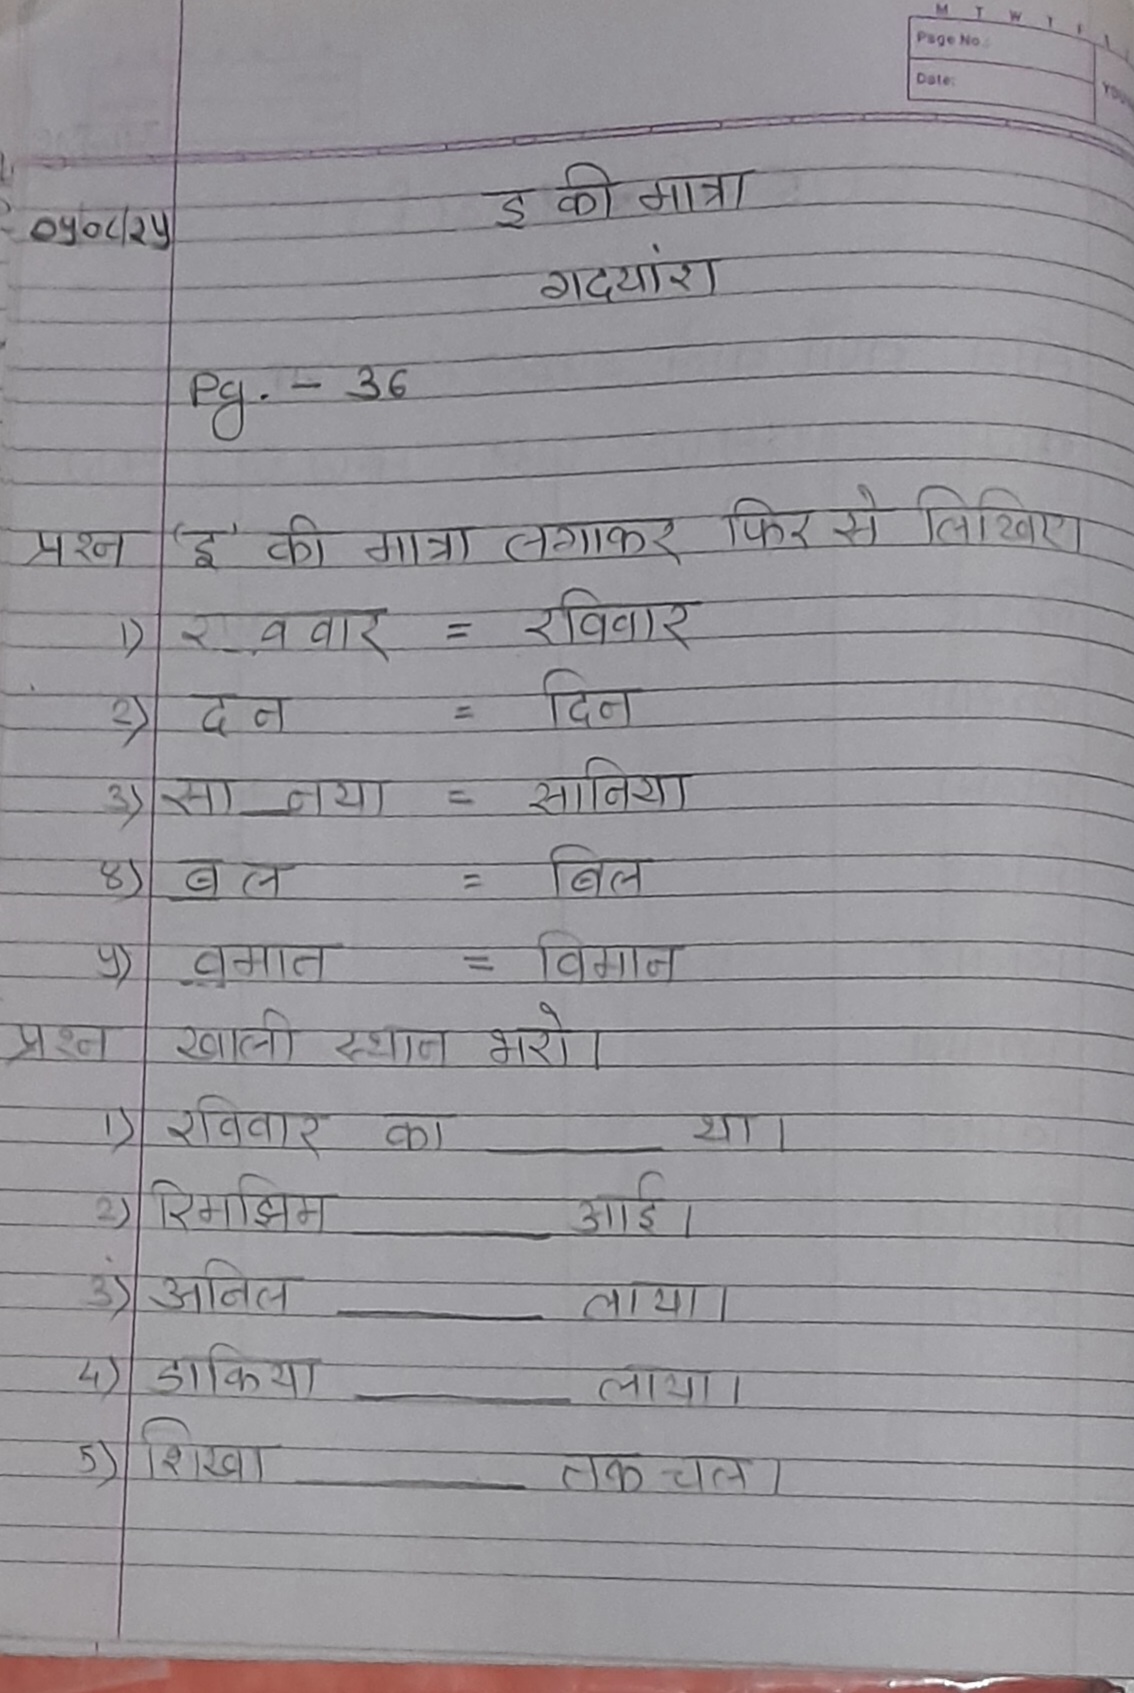 M T W T F
Page No.:
Date:
YOU
०५०८/२५
इ की मात्रा
गदयांश
Pg. - 36
प्रश्न 'इ' की मात्रा लगाकर फिर से लिखिए
१) र_ववार = रविवार
२) दन = दिन
३) सा_नया = सानिया
४) बल = बिल
५) वमान = विमान
प्रश्न खाली स्थान भरो।
1) रविवार का ______ था।
2) रिमझिम ______ आई।
3) अनिल ______ लाया।
4) डाकिया ______ लाया।
5) शिखा ______ तक चल।